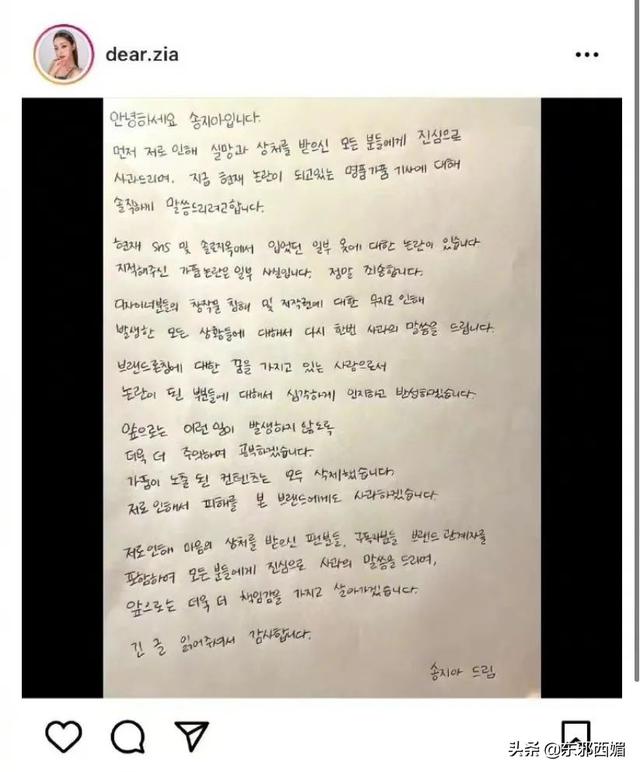 dear.zia
안녕하세요 송지아입니다.
먼저 저로 인해 실망과 상처를 받으신 모든 분들에게 진심으로
사과드리며, 지금 현재 논란이 되고있는 명품가품 기사에 대해
솔직하게 말씀드리려고합니다.
현재 SNS 및 솔로지옥에서 입었던 일부 옷에 대한 논란이 있습니다
지적해주신 가품논란은 일부 사실입니다. 정말 죄송합니다.
디자이너분들의 창작물 침해 및 저작권에 대한 무지로 인해
발생한 모든 상황들에 대해서 다시 한번 사과의 말씀을 드립니다.
브랜드론칭에 대한 꿈을 가지고 있는 사람으로서
논란이 된 부분들에 대해서 심각하게 인지하고 반성하겠습니다.
앞으로는 이런 일이 발생하지 않도록
더욱 더 주의하며 공부하겠습니다.
가품이 노출 된 컨텐츠는 모두 삭제했습니다.
저로 인해서 피해를 본 브랜드에게도 사과하겠습니다.
저로인해 마음의 상처를 받으신 팬분들, 구독자분들 브랜드 관계자를
포함하여 모든 분들에게 진심으로 사과의 말씀을 드리며,
앞으로는 더욱 더 책임감을 가지고 살아가겠습니다.
긴 글 읽어주셔서 감사합니다.
송지아 드림
头条 @东邪西媚